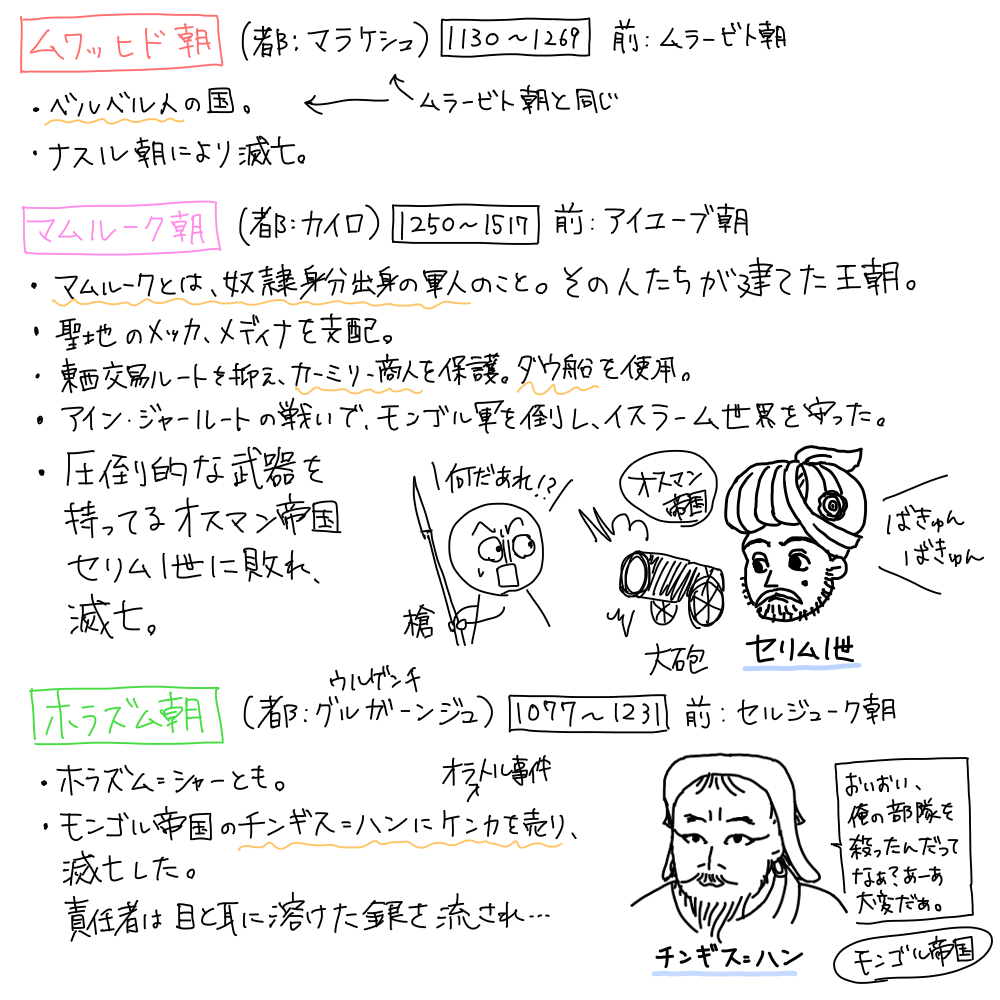 ムワッヒド朝 (都:マラケシュ) 1130～1269 前:ムラービト朝
・ベルベル人の国。 ← ムラービト朝と同じ
・ナスル朝により滅亡。
マムルーク朝 (都:カイロ) 1250～1517 前:アイユーブ朝
・マムルークとは、奴隷身分出身の軍人のこと。その人たちが建てた王朝。
・聖地のメッカ、メディナを支配。
・東西交易ルートを抑え、カーミリー商人を保護。ダウ船を使用。
・アイン・ジャールートの戦いで、モンゴル軍を倒し、イスラーム世界を守った。
・圧倒的な武器を
持ってるオスマン帝国
セリム1世に敗れ、
滅亡。
何だあれ!?
槍
オスマン
帝国
大砲
セリム1世
ばきゅん
ばきゅん
ウルゲンチ
ホラズム朝 (都:グルガーンジュ) 1077～1231 前:セルジューク朝
・ホラズム=シャーとも。
オトラル事件
・モンゴル帝国のチンギス=ハンにケンカを売り、
滅亡した。
責任者は目と耳に溶けた銀を流され…
チンギス=ハン
おいおい、
俺の部隊を
殺ったんだって
なぁ?あーあ
大変だぁ。
モンゴル帝国